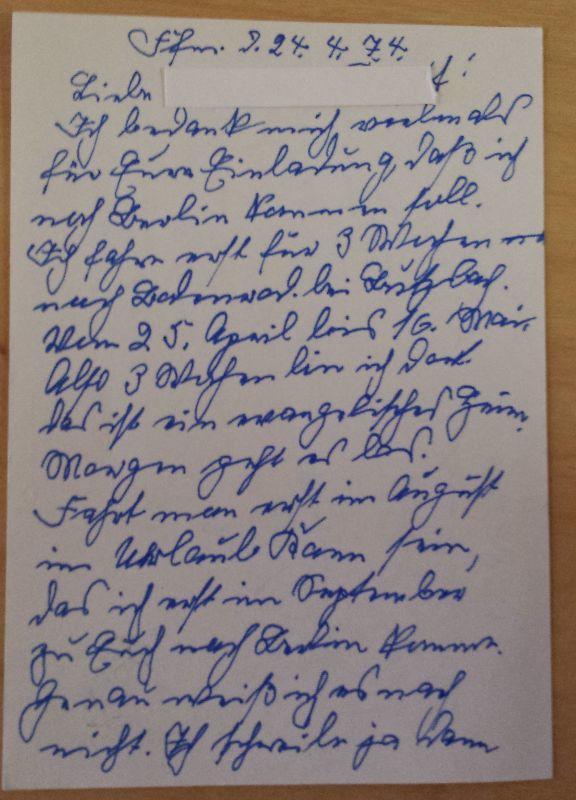 Ffm. d. 24. 4. 74.
Liebe
Ich bedank mich vielmals
für Eure Einladung, daß ich
nach Berlin kommen soll.
Ich fahre erst für 3 Wochen
nach Bodenrod. bei Butzbach.
Vom 25. April bis 16. Mai.
Also 3 Wochen bin ich dort.
das ist ein evangelisches Heim.
Morgen geht es los.
Fahrt man erst im August
im Urlaub kann sein,
das ich erst im September
zu Euch nach Berlin komme.
Genau weiß ich es noch
nicht. Ich schreibe ja dann